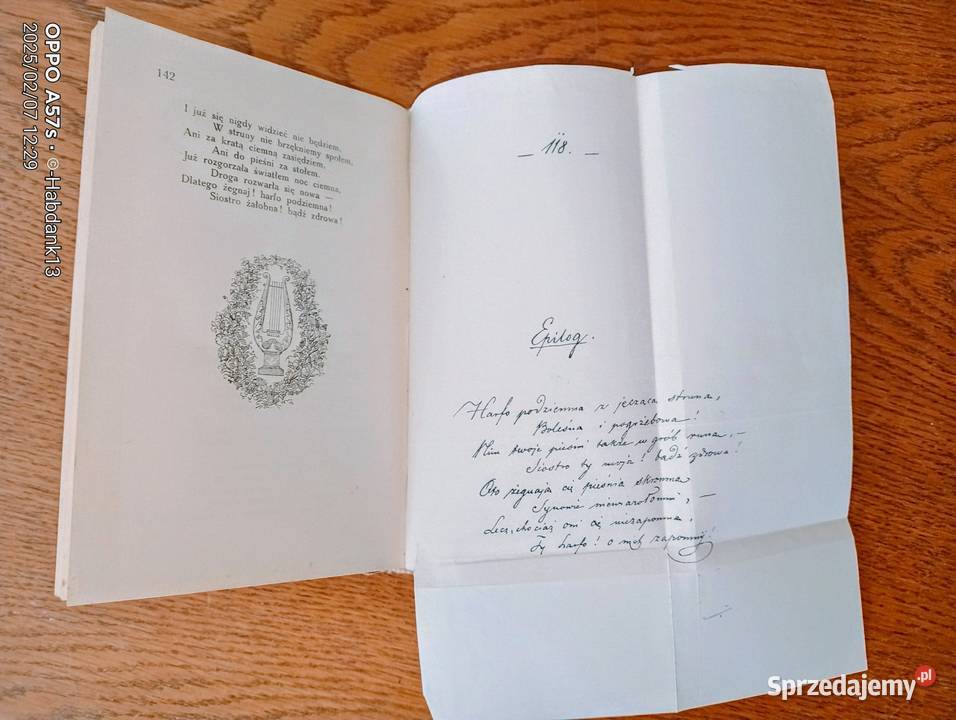 142
I już się nigdy widzieć nie będziem,
W struny nie brzękniemy społem,
Ani za kratą ciemną zasiędziem,
Ani do pieśni za stołem.
Już rozgorzała światłem noc ciemna,
Droga rozwarła się nowa —
Dlatego żegnaj! harfo podziemna!
Siostro żałobna! bądź zdrowa!
— 118. —
Epilog.
Harfo podziemna z jęcząca struna,
Boleśna i pogrzebowa!
Nim twoje pieśni także w grób runa, —
Siostro ty moja! bądź zdrowa!
Oto żegnają cię pieśnia skromna
Synowie niewoli, —
Lecz, chociaż oni cię niezapomna,
Ty harfo! o nich zapomnij!
OPPO A57s · ©-Habdank13
2025/02/07 12:29
Sprzedajemy.pl